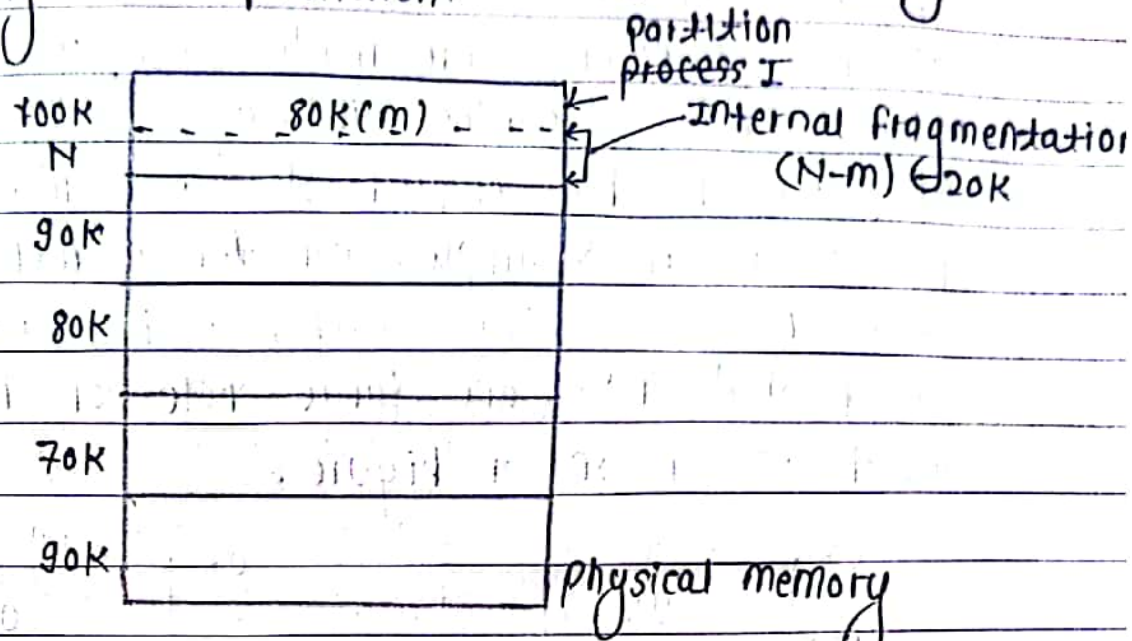 partition
process I
100K
80K(m)
Internal fragmentation
N
(N-m) 20K
90K
80K
70K
90K
physical memory